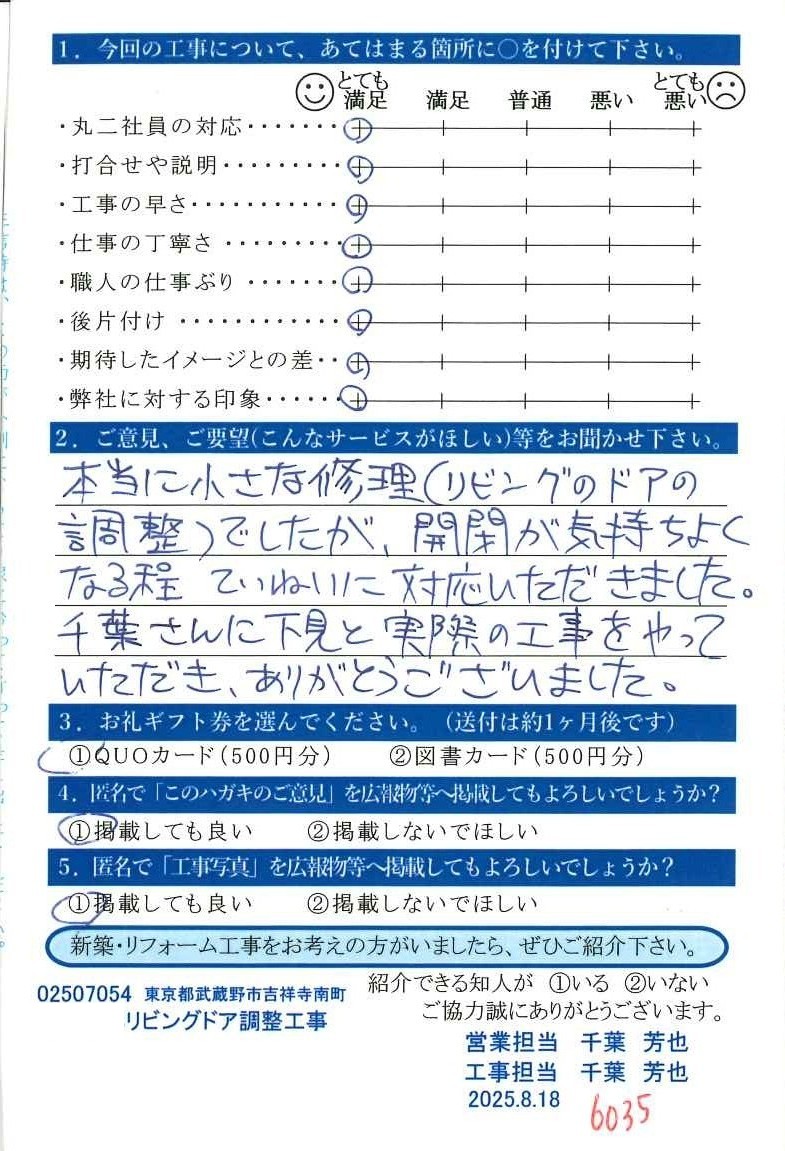 1．今回の工事について、あてはまる箇所に○を付けて下さい。
とても満足 満足 普通 悪い とても悪い
・丸二社員の対応・・・・・・・
・打合せや説明・・・・・・・・・
・工事の早さ・・・・・・・・・・・
・仕事の丁寧さ ・・・・・・・・・
・職人の仕事ぶり ・・・・・・・
・後片付け ・・・・・・・・・・・・
・期待したイメージとの差・・
・弊社に対する印象・・・・・・
2．ご意見、ご要望(こんなサービスがほしい)等をお聞かせ下さい。
本当に小さな修理(リビングのドアの
調整)でしたが、開閉が気持ちよく
なる程 ていねいに対応いただきました。
千葉さんに下見と実際の工事をやって
いただき、ありがとうございました。
3．お礼ギフト券を選んでください。（送付は約1ヶ月後です）
①QUOカード(500円分) ②図書カード(500円分)
4．匿名で「このハガキのご意見」を広報物等へ掲載してもよろしいでしょうか？
①掲載しても良い ②掲載しないでほしい
5．匿名で「工事写真」を広報物等へ掲載してもよろしいでしょうか？
①掲載しても良い ②掲載しないでほしい
新築・リフォーム工事をお考えの方がいましたら、ぜひご紹介下さい。
紹介できる知人が ①いる ②いない
ご協力誠にありがとうございます。
02507054 東京都武蔵野市吉祥寺南町
リビングドア調整工事
営業担当 千葉 芳也
工事担当 千葉 芳也
2025.8.18
6035